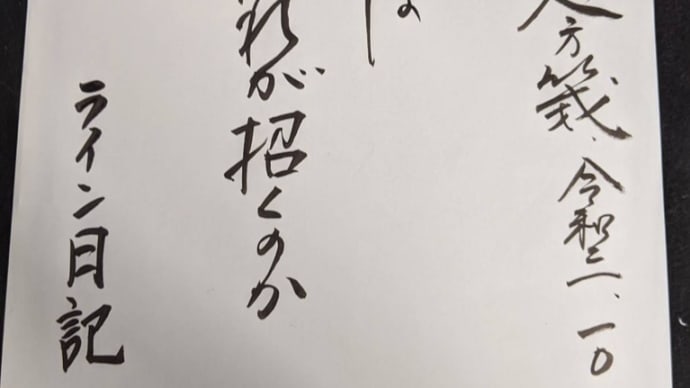 方箋、令和三、一〇
が招くのか
ライン日記